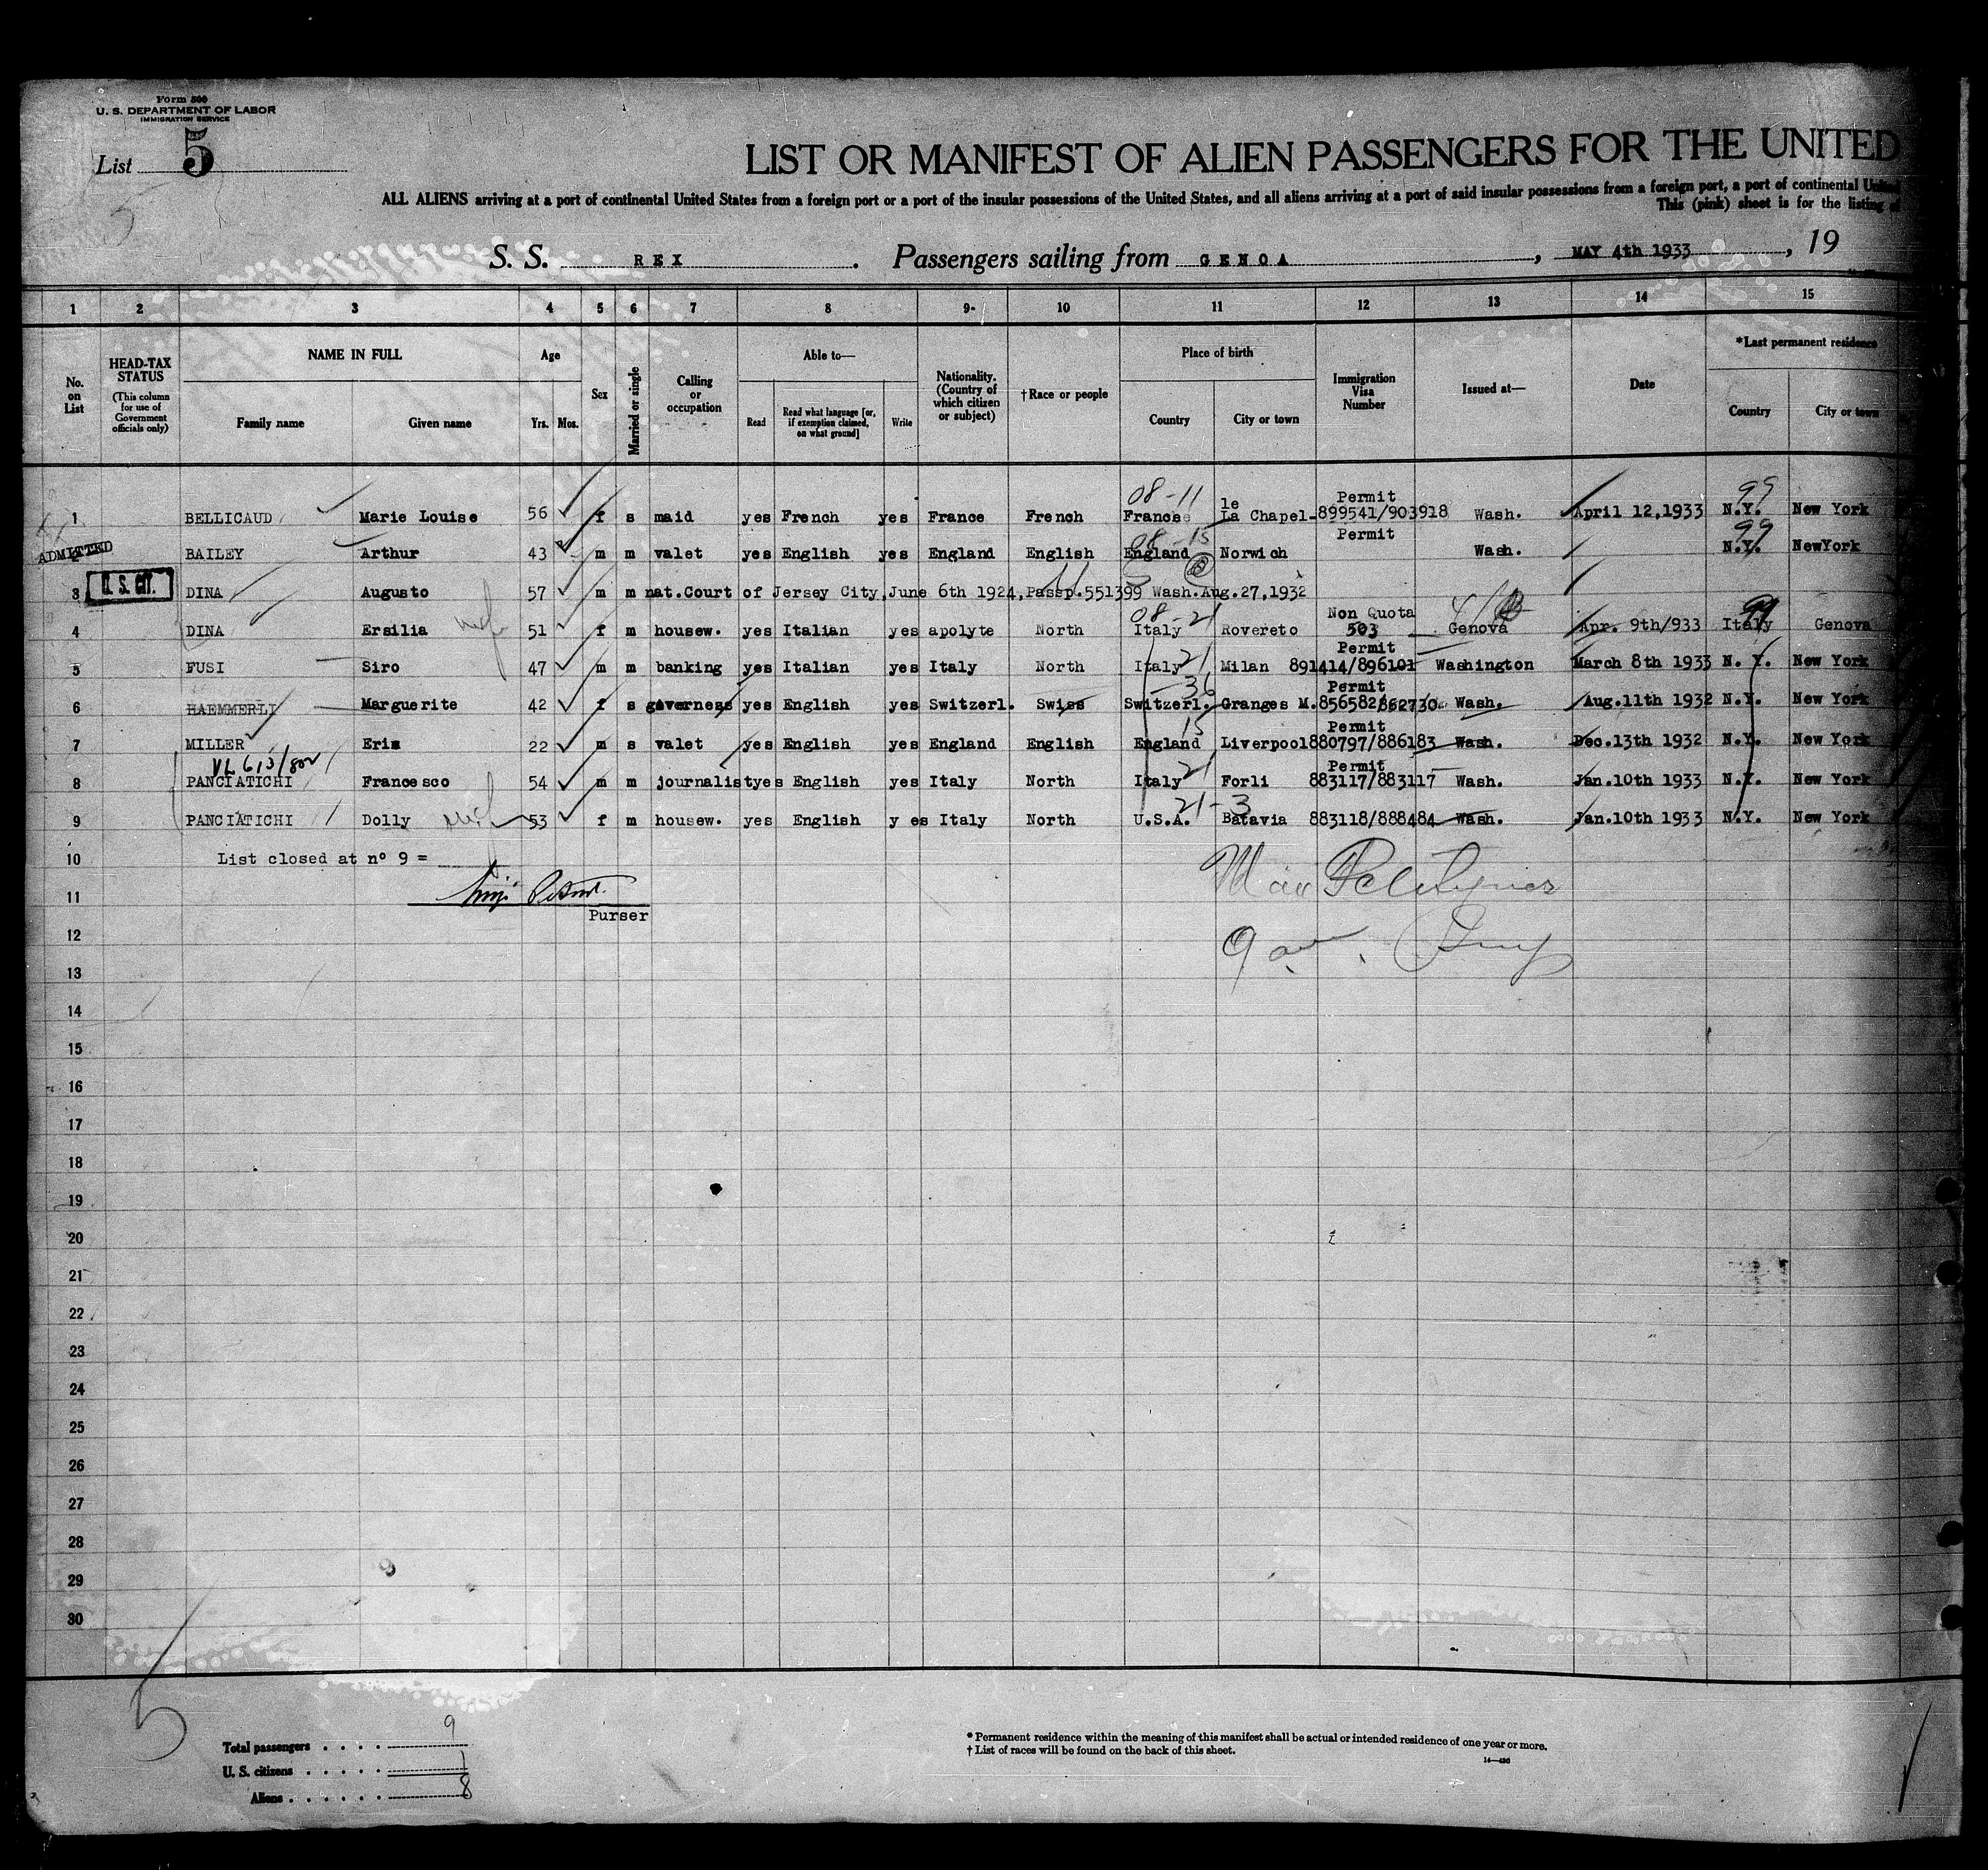 Form 500
U. S. DEPARTMENT OF LABOR
IMMIGRATION SERVICE
List 5
5
LIST OR MANIFEST OF ALIEN PASSENGERS FOR THE UNITED
ALL ALIENS arriving at a port of continental United States from a foreign port or a port of the insular possessions of the United States, and all aliens arriving at a port of said insular possessions from a foreign port, a port of continental United
This (pink) sheet is for the listing of
S. S. REX. Passengers sailing from GENOA, MAY 4th 1933, 19
1 2 3 4 5 6 7 8 9 10 11 12 13 14 15
No. on List
HEAD-TAX STATUS
(This column for use of Government officials only)
NAME IN FULL
Family name Given name
Age
Yrs. Mos.
Sex
Married or single
Calling or occupation
Able to—
Read
Read what language [or, if exemption claimed, on what ground]
Write
Nationality. (Country of which citizen or subject)
†Race or people
Place of birth
Country City or town
Immigration Visa Number
Issued at—
Date
*Last permanent residence
Country City or town
08-11 le Permit 99
1 BELLICAUD Marie Louise 56 f s maid yes French yes France French France La Chapel- 899541/903918 Wash. April 12,1933 N.Y. New York
08-15 Permit 99
ADMITTED
2 BAILEY Arthur 43 m m valet yes English yes England English England Norwich Wash. N.Y. NewYork
3 U. S. CIT. DINA Augusto 57 m m nat.Court of Jersey City,June 6th 1924,Passp.551399 Wash.Aug.27,1932
08-21 Non Quota 99
4 DINA Ersilia 51 f m housew. yes Italian yes apolyte North Italy Rovereto 503 Genova Apr. 9th/933 Italy Genova
21 Permit
5 FUSI Siro 47 m m banking yes Italian yes Italy North Italy Milan 891414/896101 Washington March 8th 1933 N. Y. New York
36 Permit
6 HAEMMERLI Marguerite 42 f s governess yes English yes Switzerl. Swiss Switzerl. Granges M. 856582/862730 Wash. Aug.11th 1932 N.Y. New York
15 Permit
7 MILLER Eris 22 m s valet yes English yes England English England Liverpool 880797/886183 Wash. Dec.13th 1932 N.Y. New York
VL 613/802 21 Permit
8 PANCIATICHI Francesco 54 m m journalist yes English yes Italy North Italy Forli 883117/883117 Wash. Jan.10th 1933 N.Y. New York
21-3
9 PANCIATICHI Dolly 53 f m housew. yes English y es Italy North U.S.A. Batavia 883118/888484 Wash. Jan.10th 1933 N.Y. New York
10 List closed at nº 9 =
11
Purser
12
13
14
15
16
17
18
19
20
21
22
23
24
25
26
27
28
29
30
5
Total passengers . . . . 9
U. S. citizens . . . . . 1
Aliens . . . . . . 8
* Permanent residence within the meaning of this manifest shall be actual or intended residence of one year or more.
† List of races will be found on the back of this sheet.
14—436